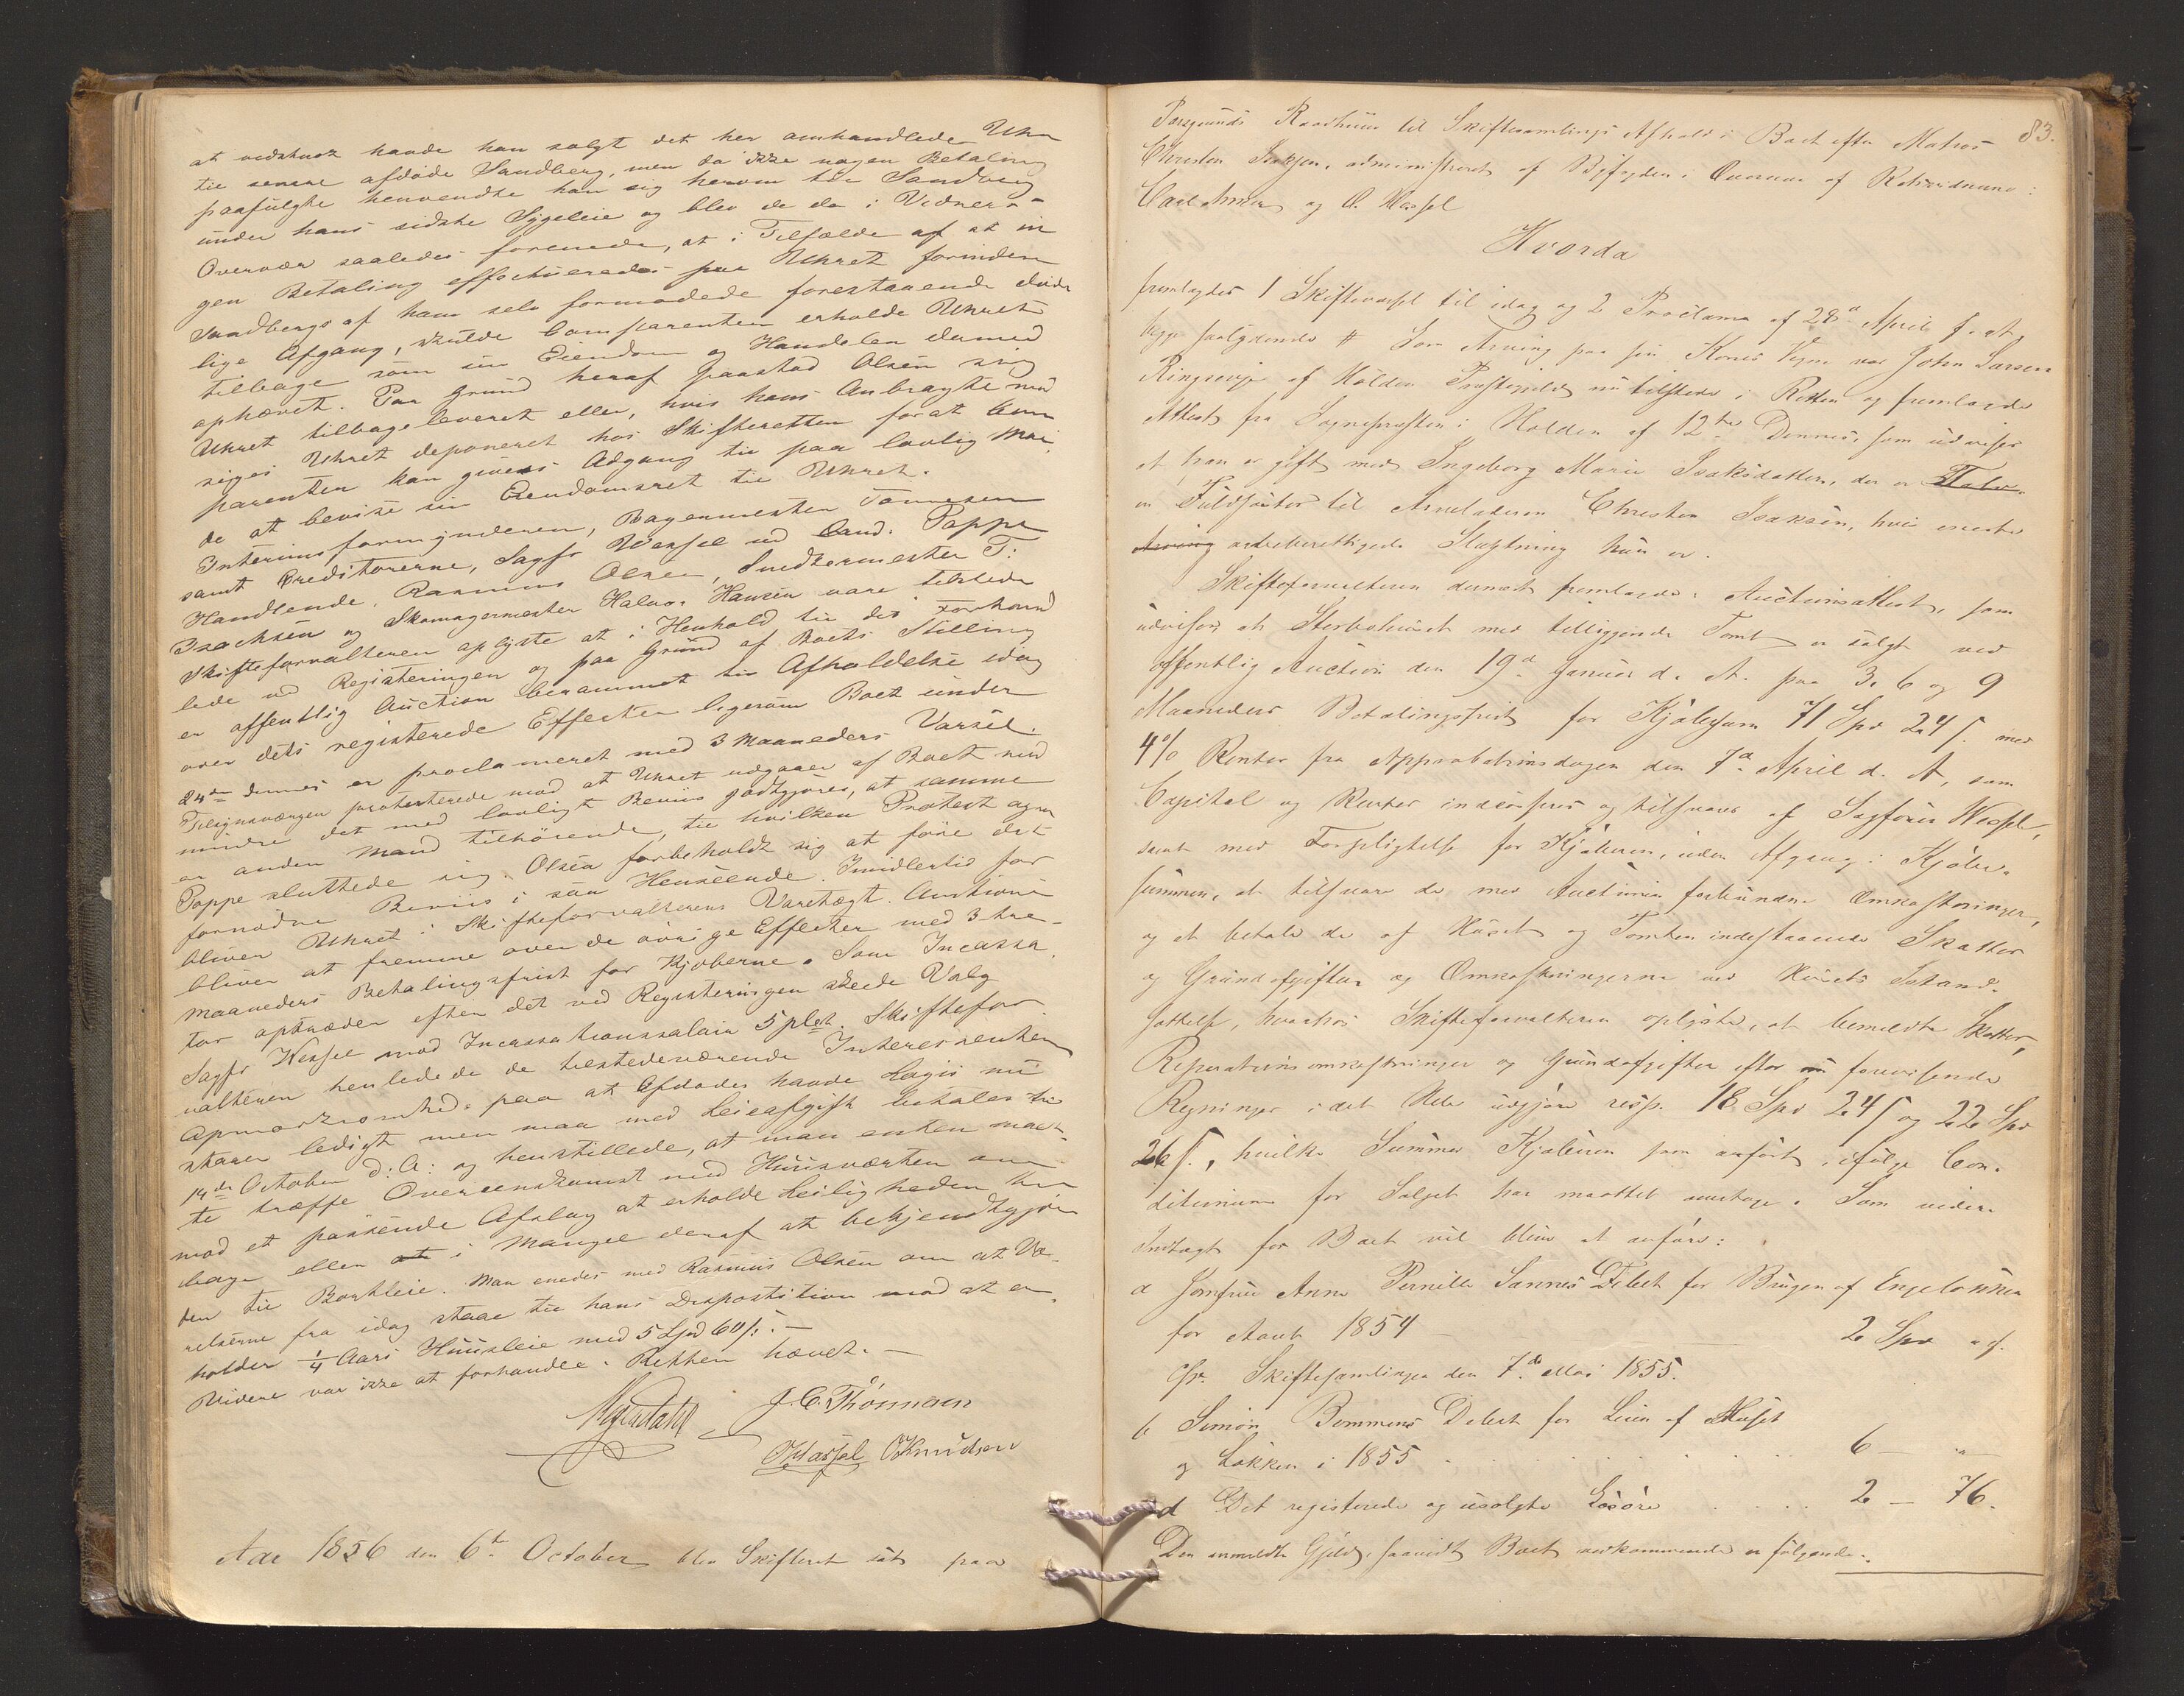 at vedstuck havde han solgt det her omhandlede Uhr
til senere afdøde Sandberg, men da ikke nogen Betaling
paafulgte henvendte han sig herom til Sandberg
under hans sidste Sygeleie og blev de da i Vidners
Overvær saaledes forenede, at i Tilfælde af at in
gen Betaling effectueredes paa Uhret forinden
Sandbergs af ham selv formodede forestaaende døde
lige Afgang, skulde Comparenten erholde Uhret
tilbage som sin Eiendom og Handelen dermed
ophævet. Paa Grund heraf paastod Olsen sig
Uhret tilbageleveret eller, hvis hans Anbragte mod
siges Uhret deponeret hos Skifteretten forat Com
parenten kan gives Adgang til paa lovlig Maa
de at bevise sin Eiendomsret til Uhret.
Interimsformynderen, Bagermester Tønnesen
samt Creditorerne, Sagfr Wessel ved Cand. Poppe
Handlende Rasmus Olsen, Snedkermester T:
Isachsen og Skomagermester Halvor Hansen vare tilstede
Skifteforvalteren oplyste at i Henhold til det Forhand
lede ved Registeringen og paa Grund af Boets Stilling
er offentlig Auction berammet til Afholdelse idag
over dets registerede Effecter ligesom Boet under
24de dennes er proclameret med 3 Maaneders Varsel.
Tilsynsværgen protesterede mod at Uhret udgaaer af Boet med
mindre det med lovligt Beviis godtgjøres, at samme
er anden Mand tilhørende, til hvilken Protest ogsaa
Poppe sluttede sig. Olsen forbeholdt sig at føre det
fornødne Beviis i saa Henseende. Imidlertid for
bliver Uhret i Skifteforvalterens Varetægt. Auctionen
bliver at fremme over de øvrige Effecter med 3 tre
Maaneders Betalingsfrist for Kjøberne. Som Incassa
tor optræder efter det ved Registeringen skeede Valg
Sagfr Wessel mod Incassationssalair 5 pCt. Skiftefor
valteren henledede de tilstedeværende Interessenters
Opmærksomhed paa at Afdødes havde Logis nu
staaer ledigt men maa med Leieafgift betales til
14de October d: A: og henstillede, at man enten maat
te træffe Overeenskomst med Huusværten om
mod et passende Afslag at erholde Leiligheden til
bage eller at i Mangel deraf at bekjendtgjøre
den til Bortleie. Man enedes med Rasmus Olsen om at Væ
relserne fra idag staae til hans Disposition mod at er
holder 1/4 Aars Huusleie med 5 Spd 60 s: —
Videre var ikke at forhandle. Retten hævet. —
J. C. Thönnesen
Hassel OKnudsen
Aar 1856 den 6te October blev Skifteret sat paa
83.
Porsgrunds Raadhuus til Skiftesamlings Afhold i Boet efter Matros
Christen Isaksen, administreret af Byfogden i Overvær af Retsvidnerne:
Carl og O. Hassel
Hvorda
fremlagdes 1 Skiftevarsel til idag og 2 Proclama af 28de April f. A.
begge saalydende # Som Arving paa sin Kones Vegne var John Larsen
Ringsevje af Holden Præstegjeld nu tilstede i Retten og fremlagde
Attest fra Sognepresten i Holden af 12te Dennes, som udviser
at han er gift med Ingeborg Marie Isaksdatter, der er Halv
en Fuldsøster til Arveladeren Christen Isaksen, hvis eneste
Arving arveberettigede Slægtning hun er.
Skifteforvalteren dernæst fremlagde Auctionsattest, som
udviser, at Sterbohuset med tilliggende Tomt er solgt ved
offentlig Auction den 19de Januar d. A. paa 3, 6 og 9
Maaneders Betalingsfrist for Kjøbesum 71 Spd 24 s. med
4% Renter fra Approbationsdagen den 7de April d. A, som
Capital og Renter indcasseres og tilsvares af Sagfører Wessel,
samt med Forpligtelse for Kjøberen, uden Afgang i Kjøbe-
summen, at tilsvare de med Auctionen forbundne Omkostninger,
og at betale de af Huset og Tomten indestaaende Skatter
og Grundafgifter og Omkostningerne ved Husets Istand-
sættelse, hvorhos Skifteforvalteren oplyste, at bemeldte Skatter,
Reparationsomkostninger og Grundafgifter efter nu foreviste
Regninger i det Hele udgjøre resp. 18 Spd 24 s og 22 Spd
26 s., hvilke Summer Kjøberen som anført, ifølge Con-
ditionerne for Salget har maattet overtage. Som videre
Indtægt for Boet vil blive at anføre:
a Jomfru Anne Pernille Sannes Debet for Brugen af Engeløkken
for Aaret 1854 — 2 Spd " s.
cfr. Skiftesamlingen den 7de Mai 1855.
b Simon Bommens Debet for Leien af Huset
og Løkken i 1855 . . . . . . 6 — " —
d Det registerede og usolgte Løsøre . . . 2 — 76.
Den anmeldte Gjeld, saavidt Boet vedkommende er følgende: